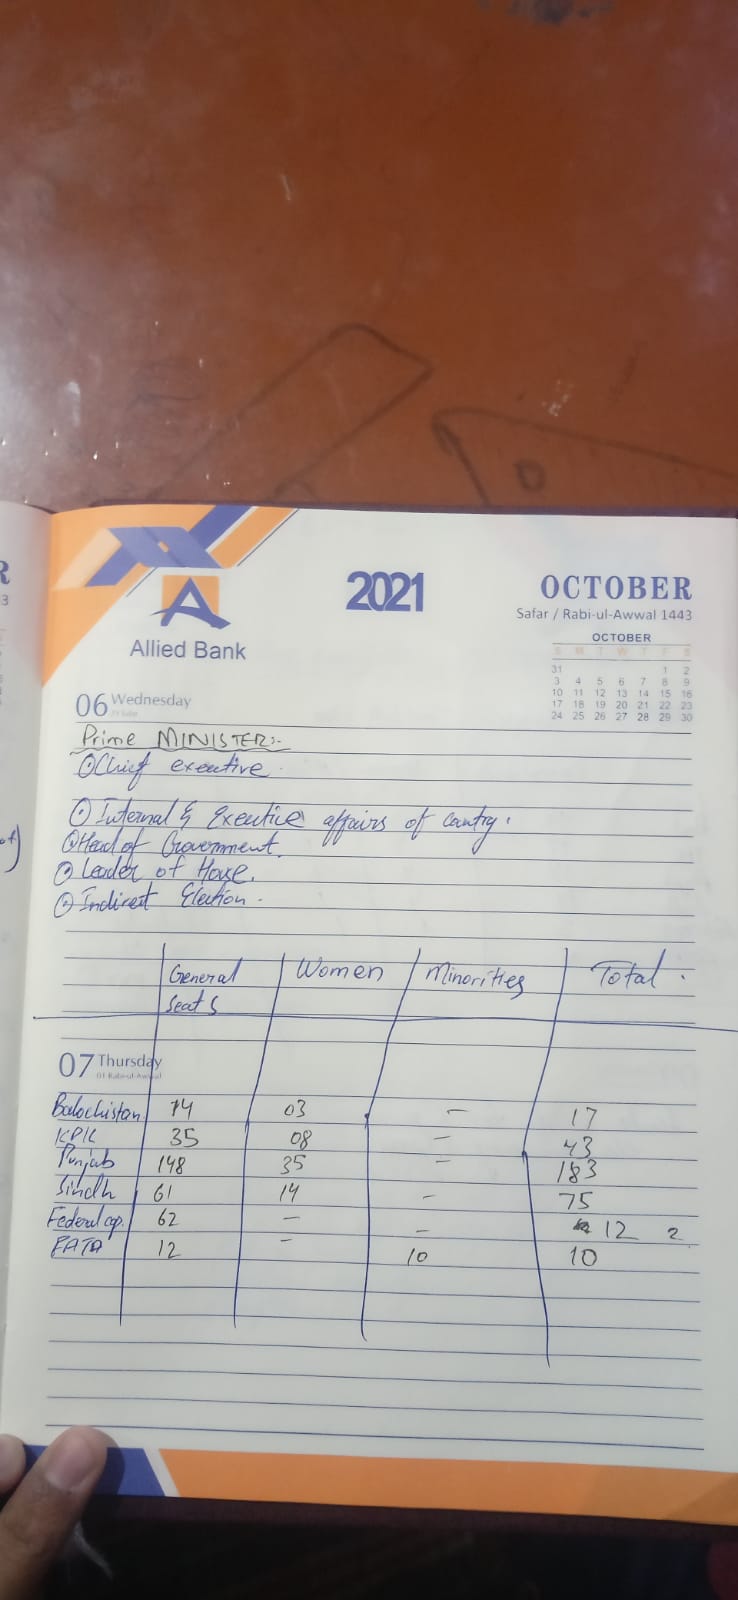 2021
OCTOBER
Safar / Rabi-ul-Awwal 1443
OCTOBER
S M T W T F S
31 1 2
3 4 5 6 7 8 9
10 11 12 13 14 15 16
17 18 19 20 21 22 23
24 25 26 27 28 29 30
Allied Bank
06 Wednesday
Prime MINISTER:-
Chief executive.
Internal & Exective affairs of country.
Head of Government.
Leader of House.
Indirect Election.
General Seats Women Minorities Total.
07 Thursday
01 Rabi-ul-Awwal
Balochistan 14 03 - 17
KPK 35 08 - 43
Punjab 148 35 - 183
Sindh 61 14 - 75
Federal cap. 62 - - 12 2
FATA 12 - 10 10